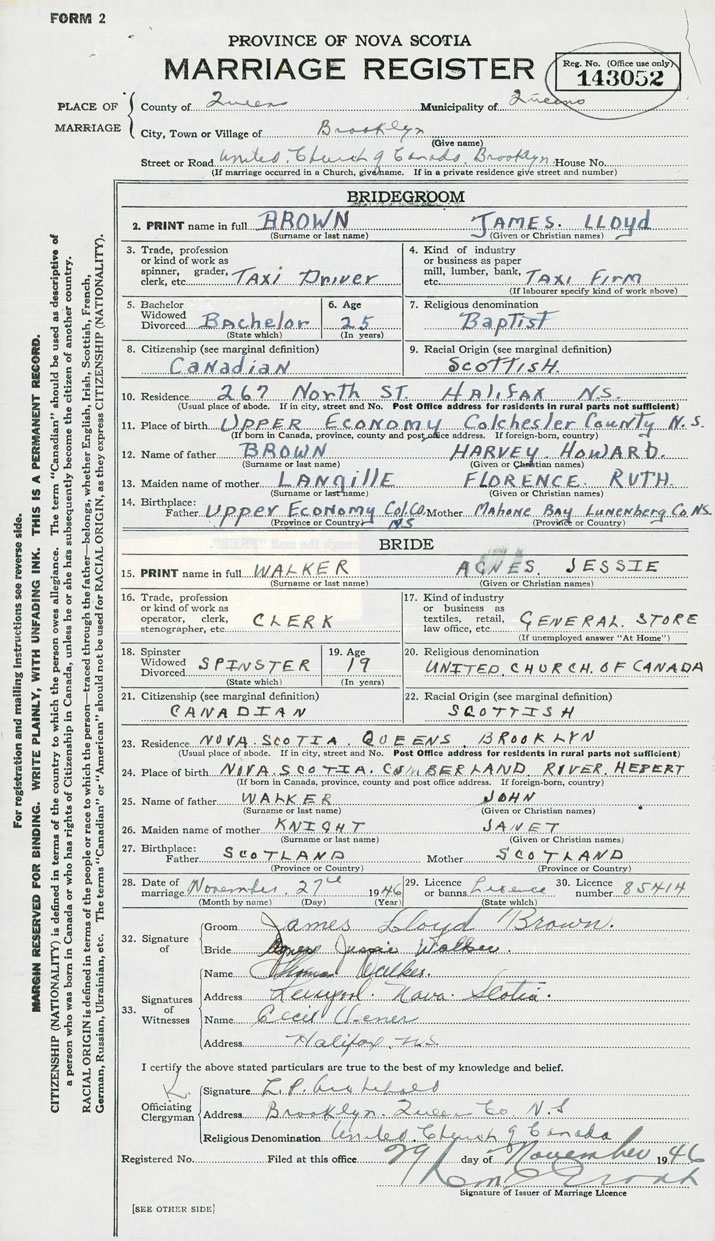 FORM 2
PROVINCE OF NOVA SCOTIA
MARRIAGE REGISTER
Reg. No. (Office use only)
143052
PLACE OF MARRIAGE
County of Queens Municipality of Queens
City, Town or Village of Brooklyn
(Give name)
Street or Road United Church of Canada, Brooklyn House No.
(If marriage occurred in a Church, give name. If in a private residence give street and number)
BRIDEGROOM
2. PRINT name in full BROWN JAMES. LLOYD
(Surname or last name) (Given or Christian names)
3. Trade, profession or kind of work as spinner, grader, clerk, etc. TAXI Driver
4. Kind of industry or business as paper mill, lumber, bank, etc. TAXI FIRM
(If labourer specify kind of work above)
5. Bachelor Widowed Divorced Bachelor
(State which)
6. Age 25
(In years)
7. Religious denomination
Baptist
8. Citizenship (see marginal definition)
Canadian
9. Racial Origin (see marginal definition)
SCOTTISH.
10. Residence 267 North ST. HALIFAX N.S.
(Usual place of abode. If in city, street and No. Post Office address for residents in rural parts not sufficient)
11. Place of birth UPPER Economy Colchester County N.S.
(If born in Canada, province, county and post office address. If foreign-born, country)
12. Name of father BROWN HARVEY. HOWARD.
(Surname or last name) (Given or Christian names)
13. Maiden name of mother LANGILLE FLORENCE. RUTH.
(Surname or last name) (Given or Christian names)
14. Birthplace:
Father Upper Economy Col. Co. NS Mother MAHONE BAY LUNENBERG Co. NS.
(Province or Country) (Province or Country)
BRIDE
15. PRINT name in full WALKER AGNES. JESSIE
(Surname or last name) (Given or Christian names)
16. Trade, profession or kind of work as operator, clerk, stenographer, etc. CLERK
17. Kind of industry or business as textiles, retail, law office, etc. GENERAL. STORE
(If unemployed answer "At Home")
18. Spinster Widowed Divorced SPINSTER
(State which)
19. Age 19
(In years)
20. Religious denomination
UNITED. CHURCH. OF CANADA
21. Citizenship (see marginal definition)
CANADIAN
22. Racial Origin (see marginal definition)
SCOTTISH
23. Residence NOVA. SCOTIA. QUEENS. BROOKLYN
(Usual place of abode. If in city, street and No. Post Office address for residents in rural parts not sufficient)
24. Place of birth NOVA. SCOTIA. CUMBERLAND. RIVER. HEPERT
(If born in Canada, province, county and post office address. If foreign-born, country)
25. Name of father WALKER JOHN
(Surname or last name) (Given or Christian names)
26. Maiden name of mother KNIGHT JANET
(Surname or last name) (Given or Christian names)
27. Birthplace:
Father SCOTLAND Mother SCOTLAND
(Province or Country) (Province or Country)
28. Date of marriage November. 27th 1946
(Month by name) (Day) (Year)
29. Licence or banns Licence
(State which)
30. Licence number 85414
32. Signature of
Groom James Lloyd Brown.
Bride Agnes Jessie Walker.
33. Signatures of Witnesses
Name Thomas Walker.
Address Liverpool. Nova. Scotia.
Name Cecil
Address Halifax, N.S.
I certify the above stated particulars are true to the best of my knowledge and belief.
Officiating Clergyman
Signature L. P. Archibald
Address Brooklyn. Queens Co. N.S
Religious Denomination United. Church of Canada
Registered No. Filed at this office 29 day of November 1946
Signature of Issuer of Marriage Licence
[SEE OTHER SIDE]
For registration and mailing instructions see reverse side.
MARGIN RESERVED FOR BINDING. WRITE PLAINLY, WITH UNFADING INK. THIS IS A PERMANENT RECORD.
CITIZENSHIP (NATIONALITY) is defined in terms of the country to which the person owes allegiance. The term "Canadian" should be used as descriptive of
a person who was born in Canada or who has rights of Citizenship in Canada, unless he or she has subsequently become the citizen of another country.
RACIAL ORIGIN is defined in terms of the people or race to which the person—traced through the father—belongs, whether English, Irish, Scottish, French,
German, Russian, Ukrainian, etc. The terms "Canadian" or "American" should not be used for RACIAL ORIGIN, as they express CITIZENSHIP (NATIONALITY).